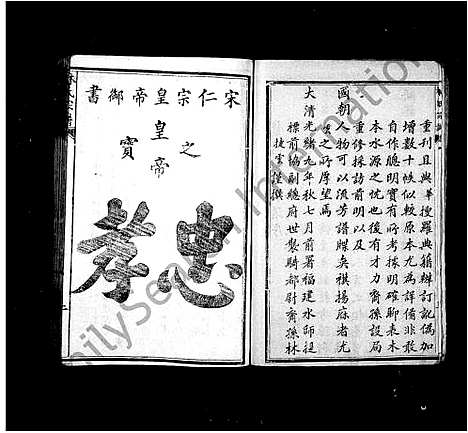 重刊且與華授羅典籍辦訂訛偽加
增數十候似較原本尤為詳備非敢
自作聰明實有所考據明確聊表木
本水源之忱也後有才力裔孫設局
重修採訪前明以及
國朝人物可以流芳譜牒奐祺揚庥者尤
之所厚望焉
大清光緒九年秋七月前署福建水師提
標前協副總府世襲騎都尉裔孫林
捷雲謹撰
宋仁宗皇帝御書
忠孝
之
皇帝
寶
FamilySearch International